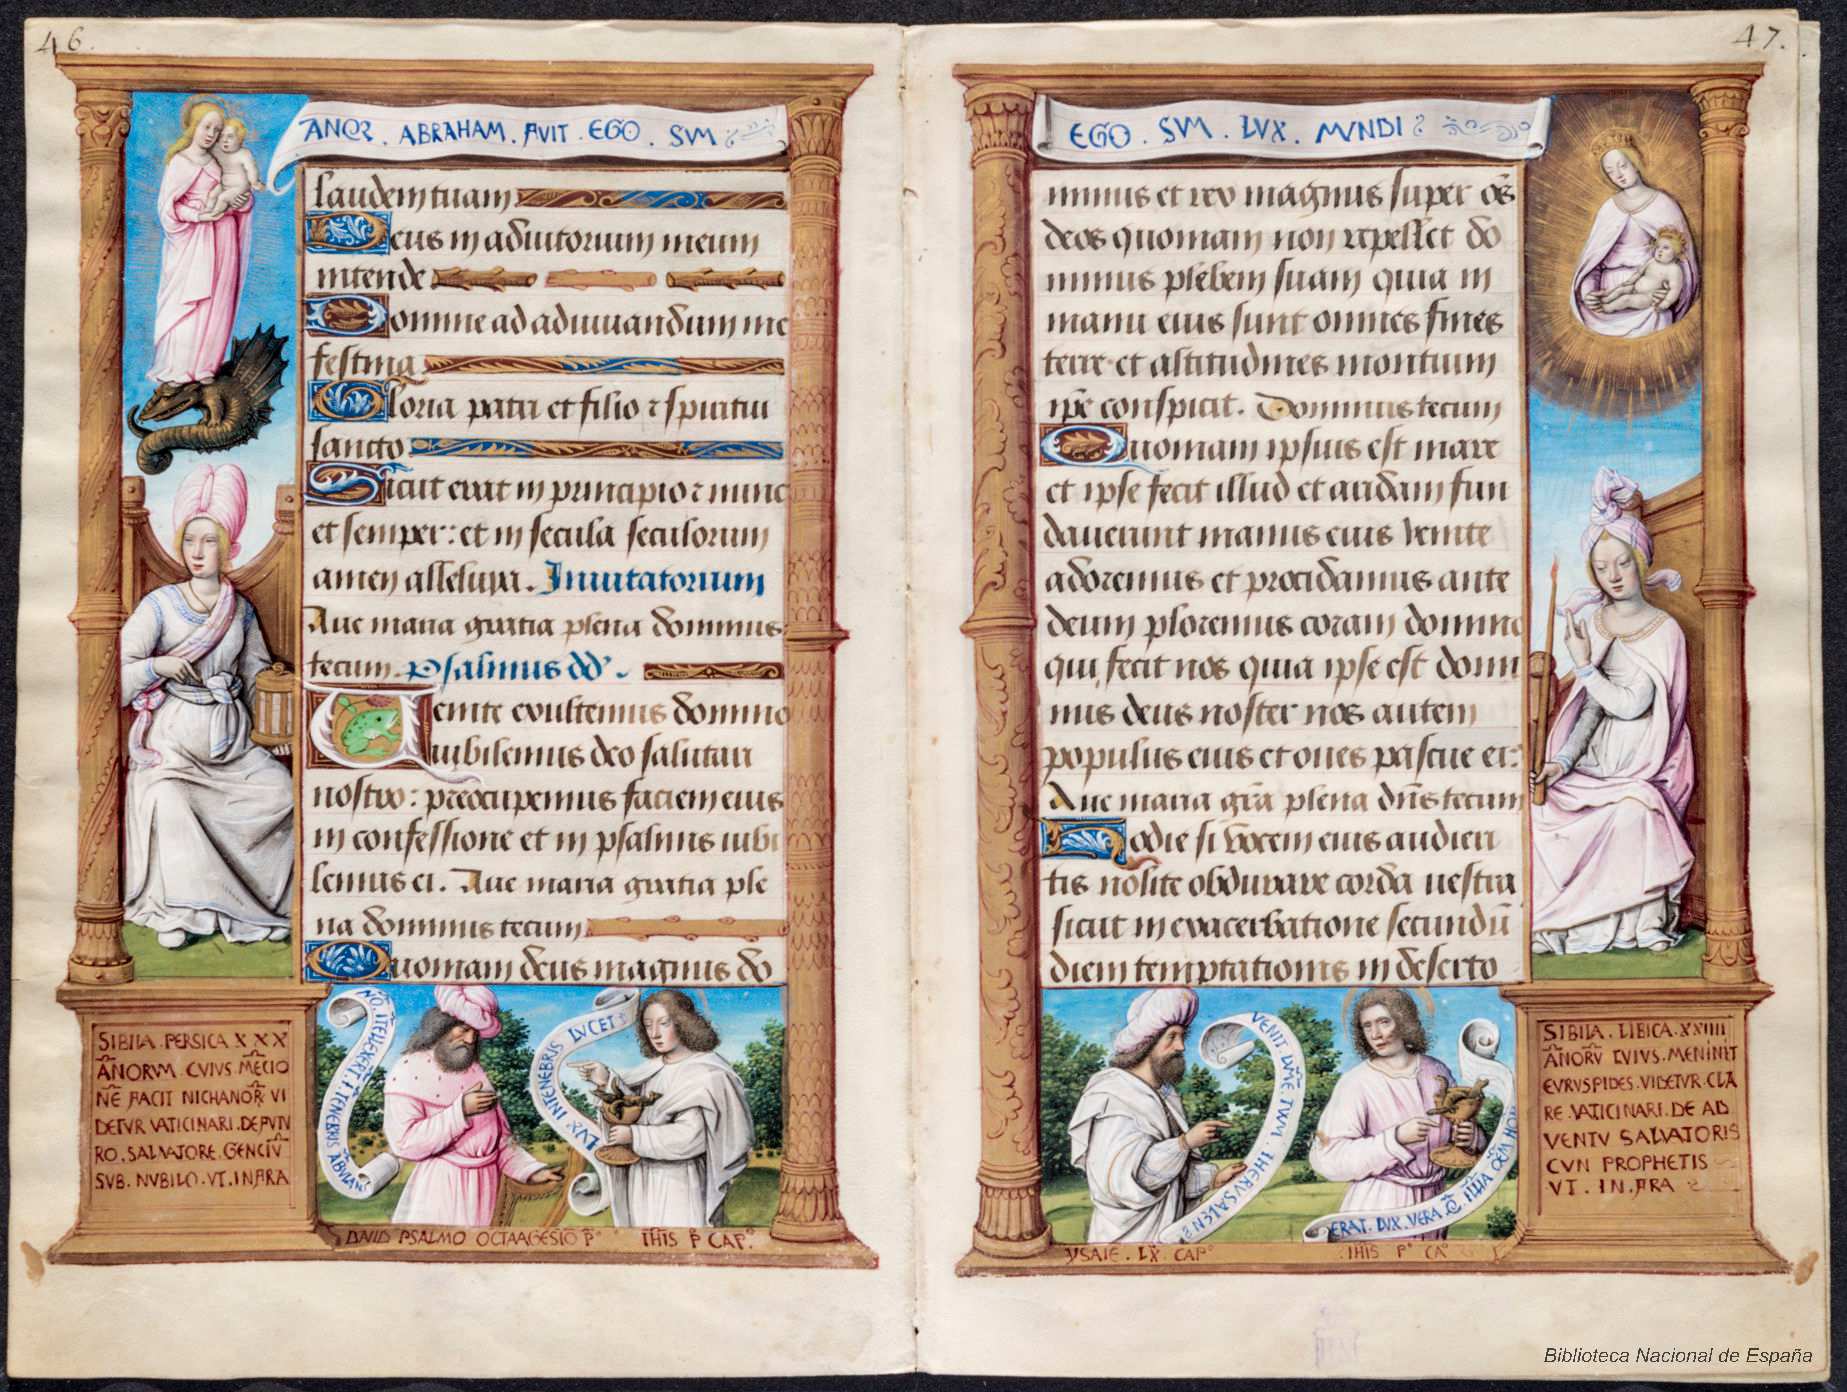 46.
ANQR . ABRAHAM . FVIT . EGO . SVM
laudem tuam
Deus in adiutorium meum
intende
Domine ad adiuuandum me
festina
Gloria patri et filio ⁊ spiritui
sancto
Sicut erat in principio ⁊ nunc
et semper: et in secula seculorum
amen alleluya. Inuitatorium
Aue maria gratia plena dominus
tecum. Psalmus dd'
Venite exultemus domino
iubilemus deo salutari
nostro: preocupemus faciem eius
in confessione et in psalmis iubi
lemus ei. Aue maria gratia ple
na dominus tecum
Quoniam deus magnus do
SIBILA . PERSICA XXX
ANORVM . CVIVS . MECIO
NE FACIT NICHANOR VI
DETVR VATICINARI . DE FVTV
RO . SALVATORE . GENCIV
SVB . NVBILO . VT . INFRA
NO . ITELLEXERT . I . TENEBRIS ABVLANT
LVX INTENEBRIS LVCET
DAVID PSALMO OCTAAGESIO P° IHIS P CAP°
47.
EGO . SVM . LVX . MVNDI
minus et rex magnus super os
deos quoniam non repellet do
minus plebem suam quia in
manu eius sunt omnes fines
terre et altitudines montium
ipe conspicit. Dominus tecum
Quoniam ipsius est mare
et ipse fecit illud et aridam fun
dauerunt manus eius venite
adoremus et procidamus ante
deum ploremus coram domino
qui fecit nos quia ipse est domi
nus deus noster nos autem
populus eius et oues pascue ei:
Aue maria gra plena dns tecum
Hodie si vocem eius audieri
tis nolite obdurare corda uestra
sicut in exacerbatione secundu
diem temptationis in deserto
SIBILA . LIBICA . XXIIII
ANORV CVIVS . MENINIT
EVRVSPIDES . VIDETVR . CLA
RE . VATICINARI . DE AD
VENTV SALVATORIS
CVN PROPHETIS
VT . IN . FRA
VENIT LVME TVVM . IHERVSALEN
ERAT . LVX . VERA
YSAIE . LX . CAP° IHIS P° CA°
Biblioteca Nacional de España